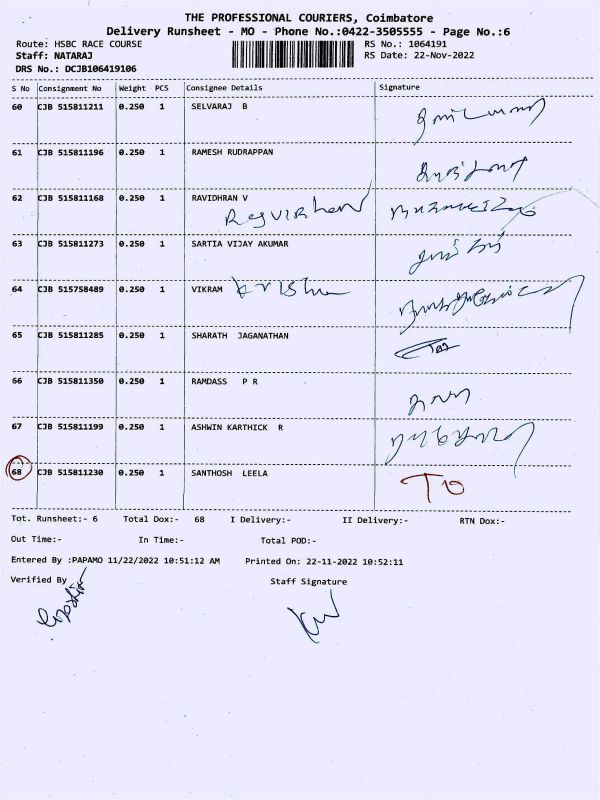 THE PROFESSIONAL COURIERS, Coimbatore
Delivery Runsheet - MO - Phone No.:0422-3505555 - Page No.:6
Route: HSBC RACE COURSE
RS No.: 1064191
Staff: NATARAJ
RS Date: 22-Nov-2022
DRS No.: DCJB106419106
S No Consignment No Weight PCS Consignee Details Signature
60 CJB 515811211 0.250 1 SELVARAJ B
61 CJB 515811196 0.250 1 RAMESH RUDRAPPAN
62 CJB 515811168 0.250 1 RAVIDHRAN V
63 CJB 515811273 0.250 1 SARTIA VIJAY AKUMAR
64 CJB 515758489 0.250 1 VIKRAM
65 CJB 515811285 0.250 1 SHARATH JAGANATHAN
66 CJB 515811350 0.250 1 RAMDASS P R
67 CJB 515811199 0.250 1 ASHWIN KARTHICK R
68 CJB 515811230 0.250 1 SANTHOSH LEELA TO
Tot. Runsheet:- 6 Total Dox:- 68 I Delivery:- II Delivery:- RTN Dox:-
Out Time:- In Time:- Total POD:-
Entered By :PAPAMO 11/22/2022 10:51:12 AM Printed On: 22-11-2022 10:52:11
Verified By Staff Signature